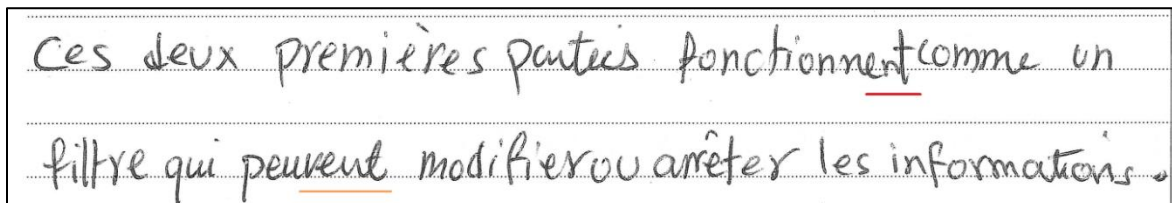 Ces deux premières parties fonctionnent comme un
filtre qui peuvent modifier ou arrêter les informations.